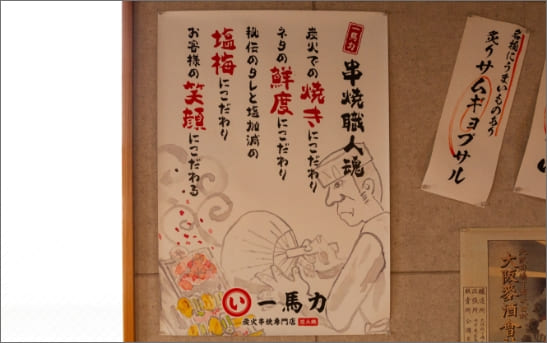 一馬力
串焼職人魂
炭火での焼きにこだわり
ネタの鮮度にこだわり
秘伝のタレと塩加減の
塩梅にこだわり
お客様の笑顔にこだわる
い 一馬力
炭火串焼専門店
名極にうまいものあり
炙りサムギョプサル